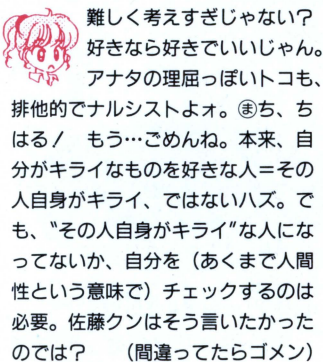 難しく考えすぎじゃない?
好きなら好きでいいじゃん。
アナタの理屈っぽいトコも、
排他的でナルシストよォ。㋮ち、ち
はる! もう…ごめんね。本来、自
分がキライなものを好きな人=その
人自身がキライ、ではないハズ。で
も、〝その人自身がキライ〟な人にな
ってないか、自分を(あくまで人間
性という意味で)チェックするのは
必要。佐藤クンはそう言いたかった
のでは? (間違ってたらゴメン)